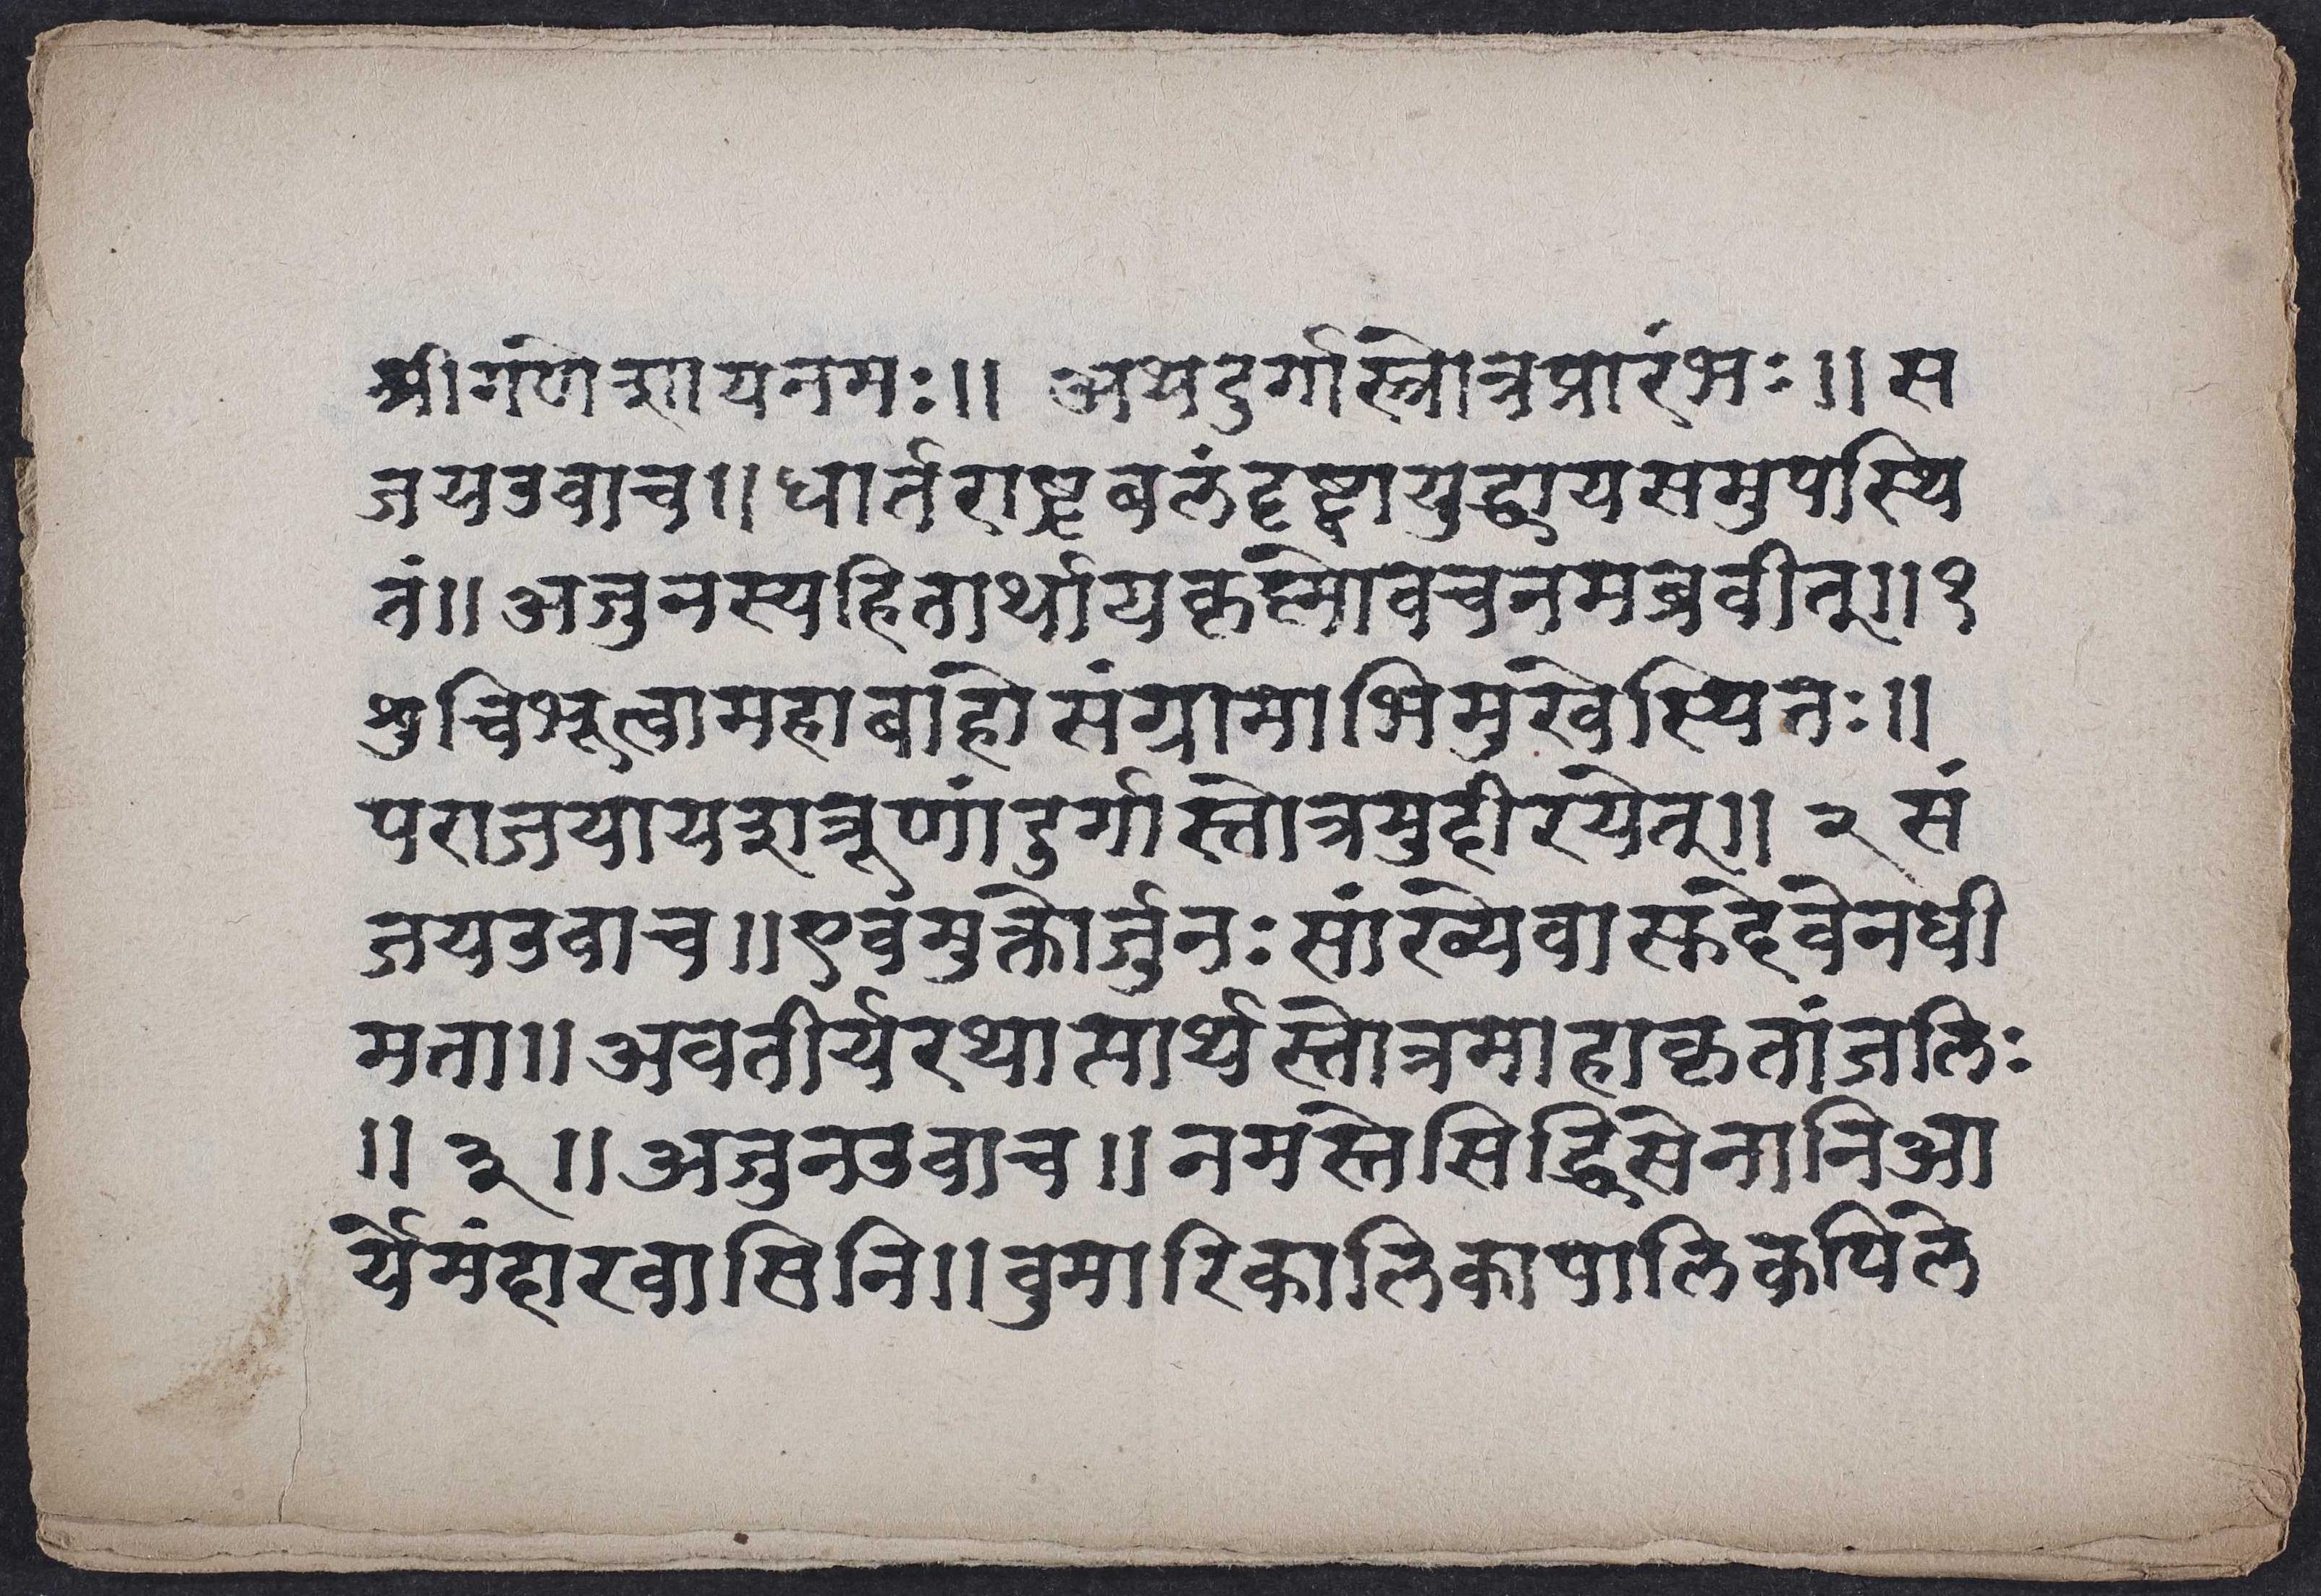 श्रीगणेशायनमः॥ अथदुर्गास्तोत्रप्रारंभः॥ स
जयउवाच॥ धार्तराष्ट्रबलंदृष्ट्वायुद्धायसमुपस्थि
तं॥ अजुनस्यहितार्थायकृष्णोवचनमब्रवीत्॥१
शुचिभूत्वामहाबाहोसंग्रामाभिमुखेस्थितः॥
पराजयायशत्रूणांदुर्गास्तोत्रमुदीरयेत्॥ २ सं
जयउवाच॥ एवंमुक्तोर्जुनः सांख्येवासुदेवेनधी
मता॥ अवतीर्यरथात्पार्थस्तोत्रमाहाकृतांजलिः
॥ ३ ॥ अजुनउवाच॥ नमस्तेसिद्धिसेनानिआ
र्येमंदारवासिनि॥ कुमारिकालिकापालिकपिले